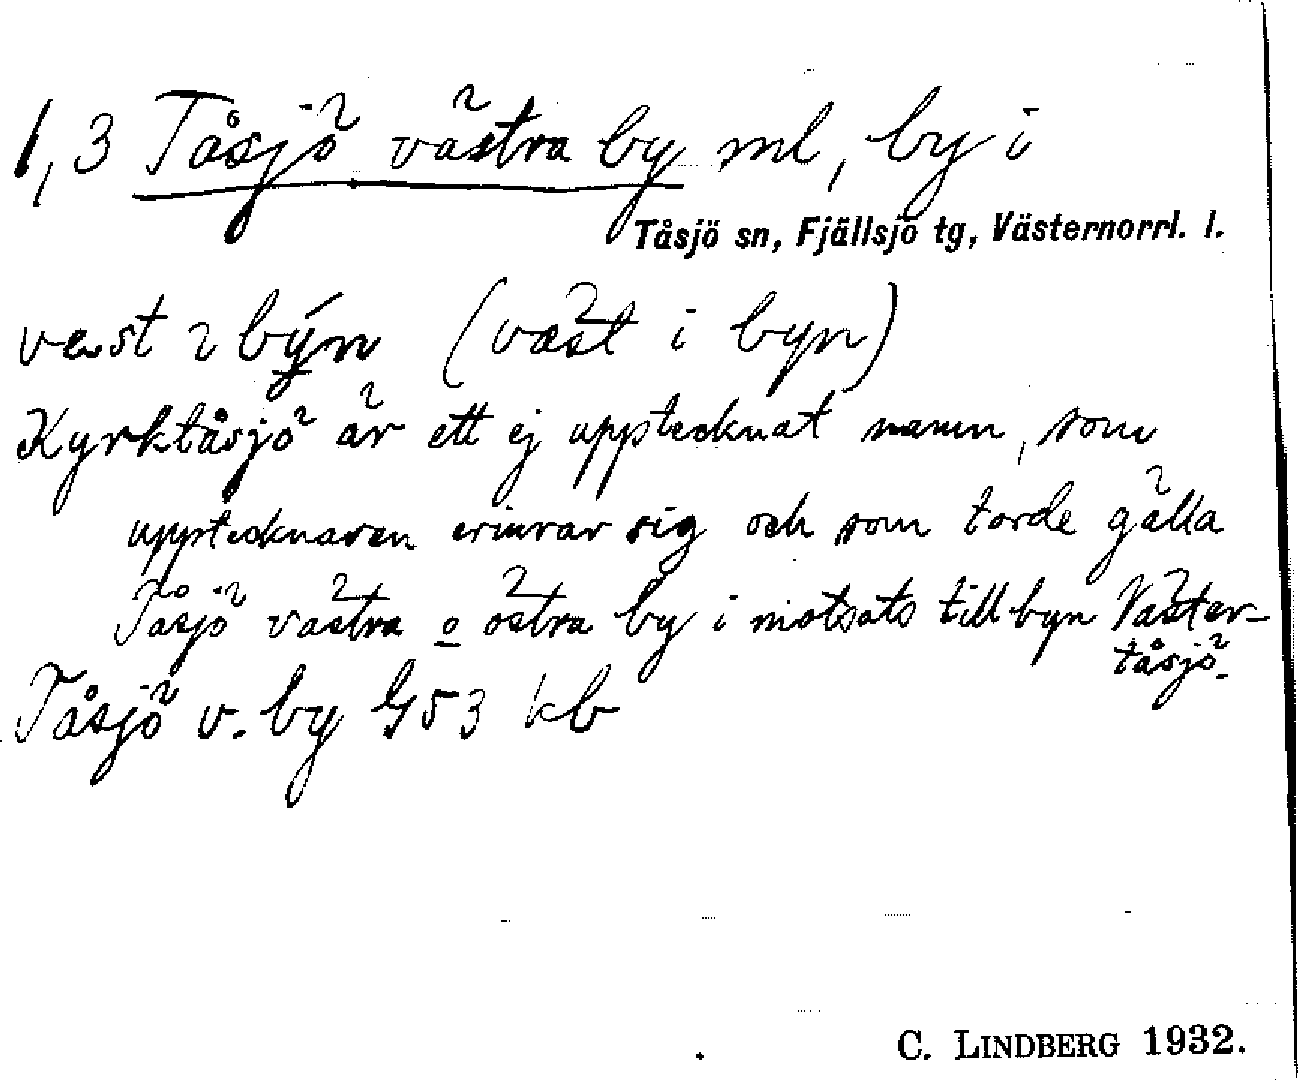 1,3 Tåsjö västra by ml, by i
Tåsjö sn, Fjällsjö tg, Västernorrl. l.
vest i býn (väst i byn)
Kyrktåsjö är ett ej upptecknat namn, som
upptecknaren erinrar sig och som torde gälla
Tåsjö västra o östra by i motsats till byn Väster-
tåsjö.
Tåsjö v. by G53 kb
C. LINDBERG 1932.